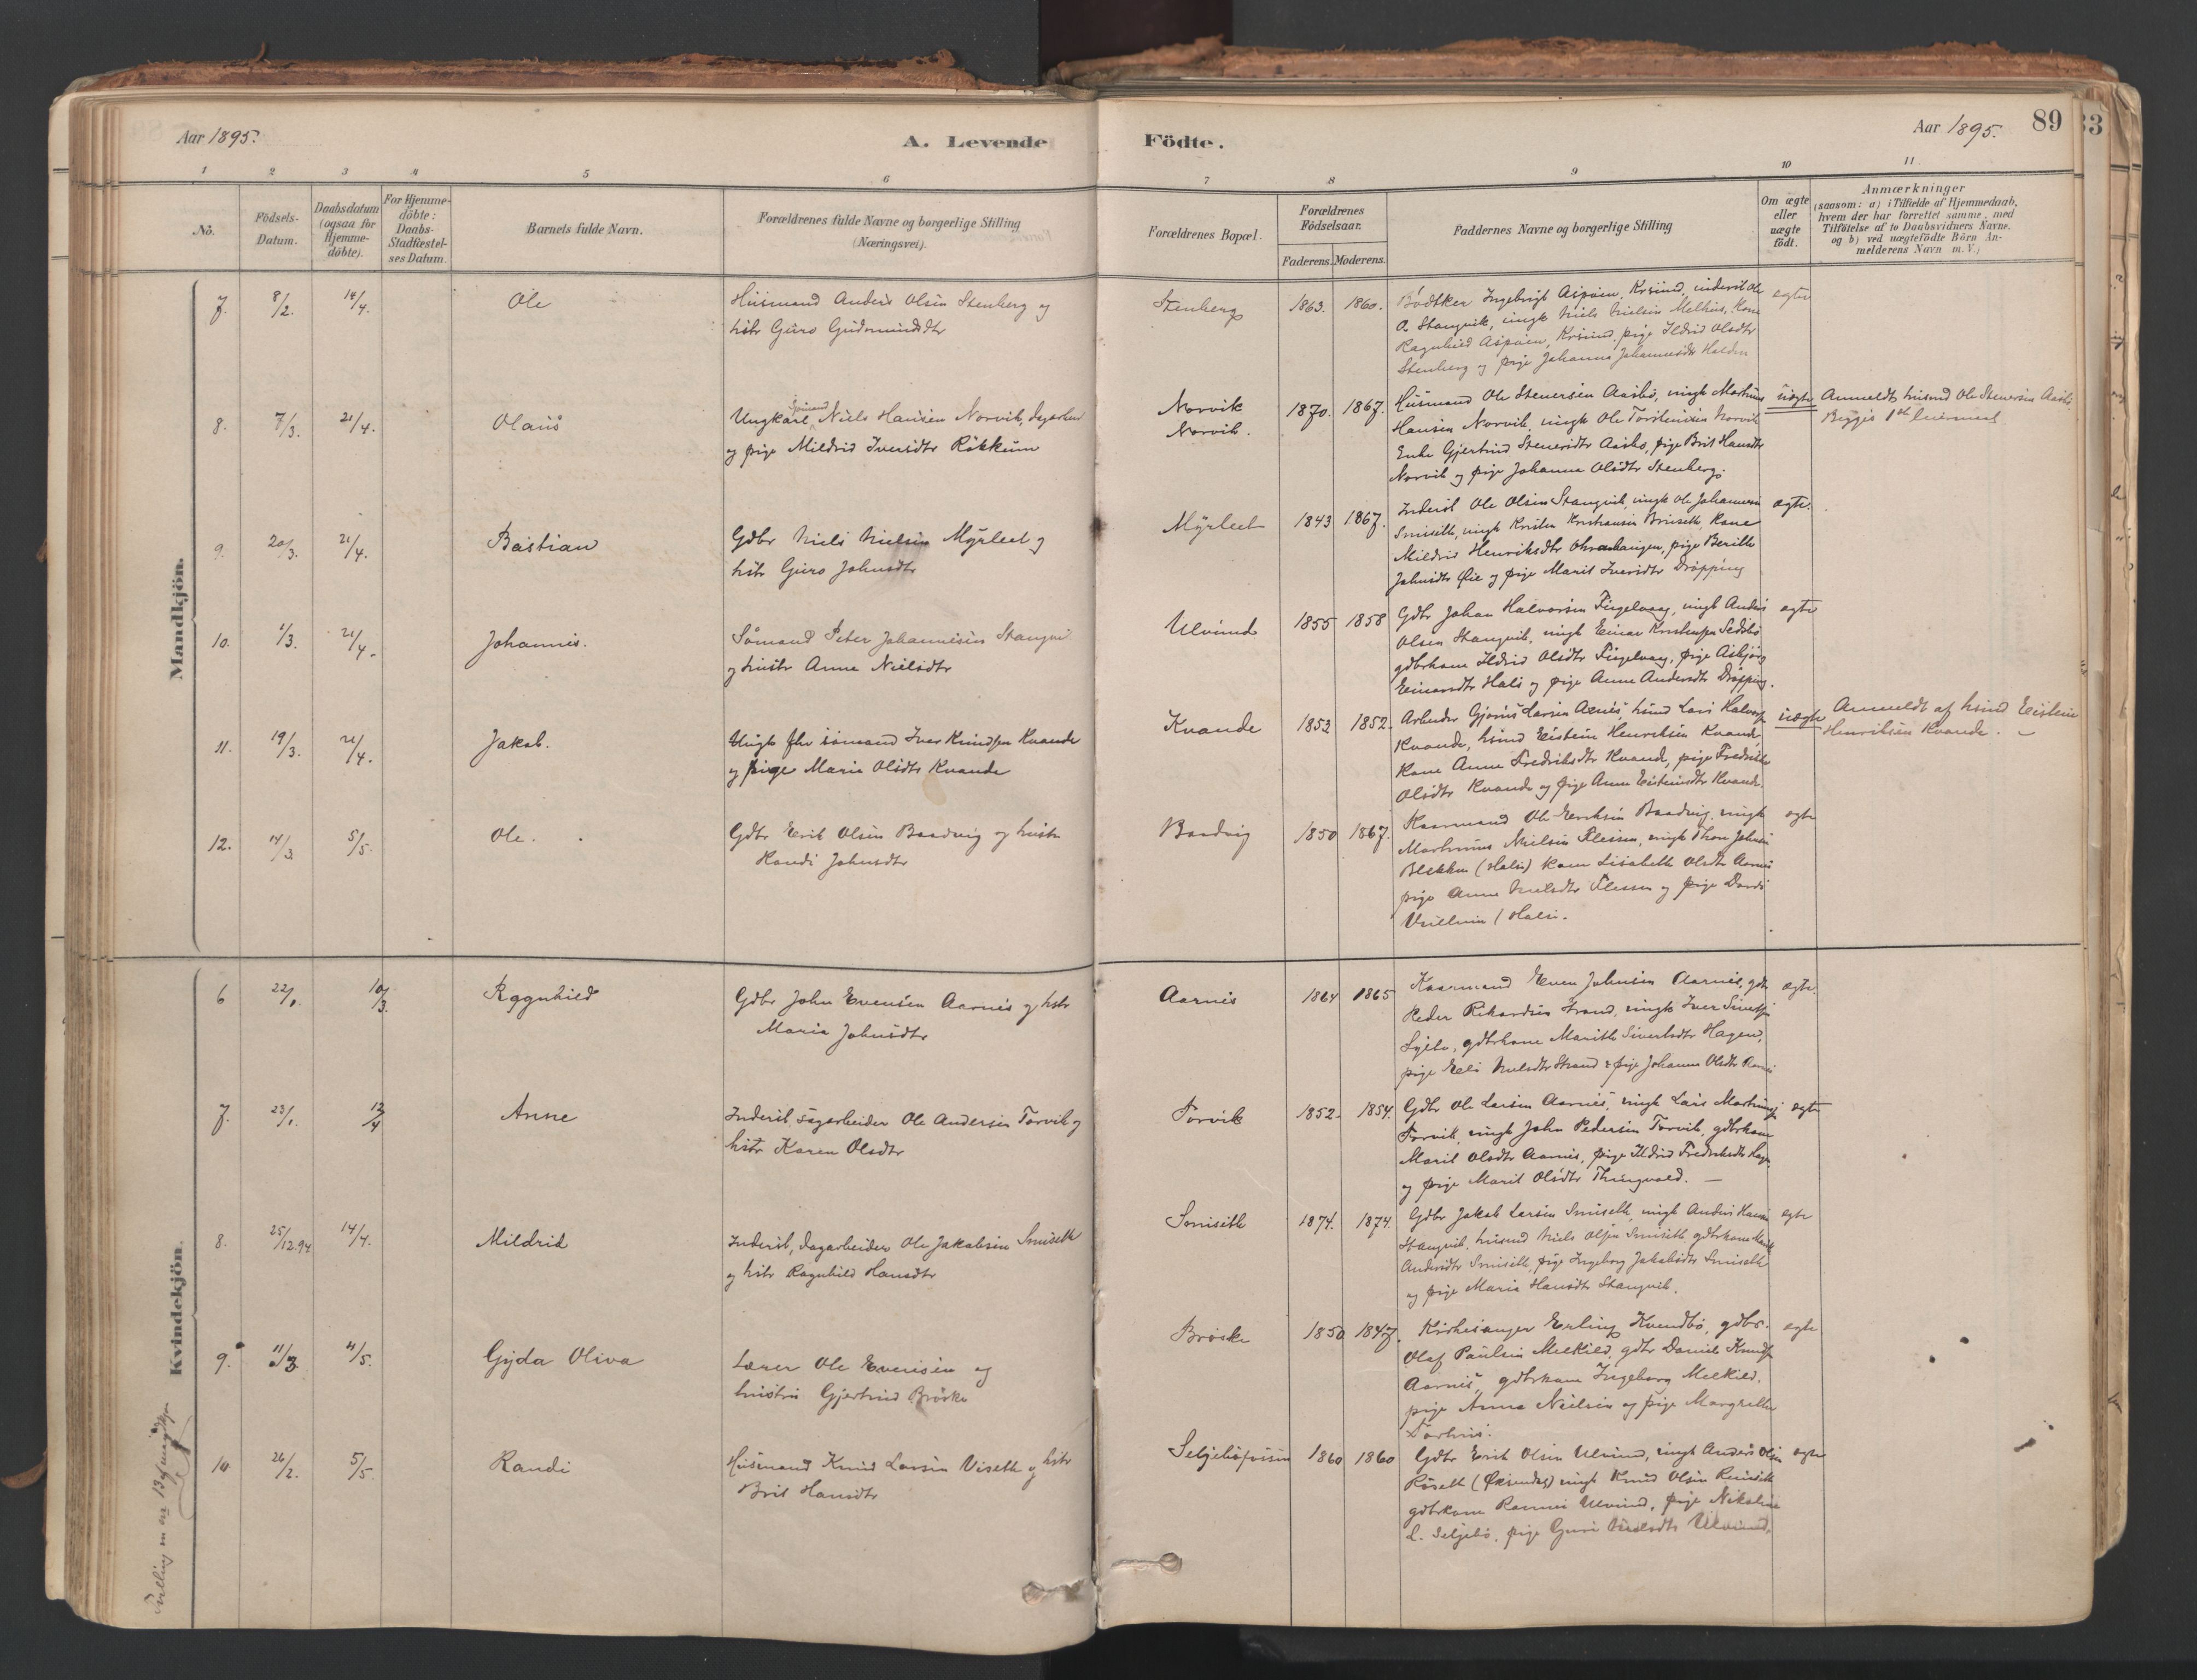 Aar 1895.
A. Levende
Födte.
Aar 1895.
89
33
1 2 3 4 5 6 7 8 9 10 11
No.
Födsels-
Datum.
Daabsdatum
(ogsaa for
Hjemme-
döbte).
For Hjemme-
döbte:
Daabs-
Stadfæstel-
ses Datum.
Barnets fulde Navn.
Forældrenes fulde Navne og borgerlige Stilling
(Næringsvei).
Forældrenes Bopæl.
Forældrenes
Födselsaar.
Faderens. Moderens.
Faddernes Navne og borgerlige Stilling
Om ægte
eller
uægte
födt.
Anmærkninger
(saasom: a) i Tilfælde af Hjemmedaab,
hvem der har forrettet samme, med
Tilföielse af to Daabsvidners Navne.
og b) ved uægtefödte Börn An-
melderens Navn m.V.)
Mandkjön.
7. 8/2. 14/4. Ole
Husmand Anders Olsen Stenberg og
hstr Guro Gudmundsdtr
Stenberg 1863. 1860.
Bödtker Ingebrigt Aspöien, Krsund, inderst Ole
O. Stangvik, ungk Niels Nielsen Melhus, Kone
Ragnhild Aspöien, Krsund, pige Ildrid Olsdtr
Stenberg og pige Johanna Johannesdtr Halden
ægte
8. 7/3. 21/4. Olaus
Ungkarl Sömand Niels Hansen Norvik, dagarbeid
og pige Mildrid Iversdtr Rökkum
Norvik
Norvik.
1870. 1867.
Husmand Ole Stenersen Aasbö, ungk Mathias
Hansen Norvik, ungk Ole Torstensen Norvik
Enke Gjertrud Stenersdtr Aasbö, pige Brit Hansdtr
Norvik og pige Johanna Olsdtr Stenberg.
uægte
Anmeldt husmd Ole Stenersen Aasbö.
Begges 1ste leiermaal
9. 20/3. 21/4. Bastian
Gdbr Niels Nielsen Myrleet og
hstr Guro Johnsdtr
Myrleet 1843 1867.
Inderst Ole Olsen Stangvik, ungk Ole Johannesen
Smiseth, ungk Kristen Kristiansen Brusett, Kone
Mildrid Henriksdtr, pige Berille
Johnsdtr Öie og pige Marit Iversdtr Dröpping
ægte.
10. 1/3. 21/4. Johannes.
Sömand Peter Johannesen Stangvi
og hustr Anne Nielsdtr
Ulvund 1855 1858
Gdbr Johan Halvorsen Fugelvaag, ungk Anders
Olsen Stangvik, ungk Einar Kristensen Sedsbö
gdbrkone Ildrid Olsdtr Fugelvaag, pige Asbjörg
Einarsdtr Hals og pige Anne Andersdtr Dröpping.
ægte
11. 19/3. 21/4. Jakob.
Ungk fhv sömand Iver Knudsen Kvande
og pige Marie Olsdtr Kvande
Kvande 1853 1852.
Arbeider Gjöris Larsen Aarnes, husmd Lars Halvorsen
Kvande, husmd Eistein Henriksen Kvande,
Kone Anne Fredriksdtr Kvande, pige Fredrikke
Olsdtr Kvande og pige Anne Eisteinsdtr Kvande.
uægte
Anmeldt af husmd Eistein
Henriksen Kvande. —
12. 14/3. 5/5. Ole.
Gdbr Erik Olsen Baardvig og hustr
Randi Johnsdtr
Baardvig 1850 1867.
Kaarmand Ole Eriksen Baardvig, ungk
Mathias Nielsen Flessen, ungk Thore Johnsen
Blekken (Halse) kone Lisabeth Olsdtr Aarnes
pige Anne Nielsdtr Flessen og pige Dordi
(Halse.
ægte
Kvindekjön.
6 22/1. 10/3. Ragnhild
Gdbr John Evensen Aarnes og hstr
Maria Johnsdtr
Aarnes 1864 1865
Kaarmand Even Johnsen Aarnes, gdbr
Peder Rikardsen Strand, ungk Iver Sivertsen
gdbrkone Marith Sivertsdtr Hagen,
pige Eli Nielsdtr Strand & pige Johanna Olsdtr
ægte.
7. 23/1. 12/4 Anne
Inderst, dagarbeider Ole Andersen Torvik og
hstr Karen Olsdtr
Torvik 1852. 1854.
Gdbr Ole Larsen Aarnes, ungk Lars
Torvik, ungk John Pedersen Torvik, gdbrkone
Marit Olsdtr Aarnes, pige Ildrid Fredriksdtr
og pige Marit Olsdtr Thingvold. —
ægte
8. 25/12.94. 14/4. Mildrid
Inderst, dagarbeider Ole Jakobsen Smiseth
og hstr Ragnhild Hansdtr
Smiseth 1874. 1874.
Gdbr Jakob Larsen Smiseth, ungk Anders Hansen
Stangvik, husmd Niels Olsen Smiseth, gdbrkone Marit
Andersdtr Smiseth, pige Ingeborg Jakobsdtr Smiseth
og pige Maria Hansdtr Stangvik.
ægte
9. 11/3 4/5. Gyda Oliva
Lærer Ole Evensen og
hustru Gjertrud Bröske
Bröske 1850 1847.
Kirkesanger Erling Kvendbö, gdbr.
Olaf Paulsen Melkild, gdbr Daniel Knudsen
Aarnes, gdbrkone Ingeborg Melkild,
pige Anna Nielsen og pige Margrethe
ægte
10 26/2. 5/5. Randi
Husmand Knud Larsen Viseth og hstr
Brit Hansdtr
1860 1860
Gdbr Erik Olsen Ulvund, ungk Anders Olsen
Röseth (Öksendal) ungk Knud Olsen
gdbrkone Rannei Ulvund, pige Nikoline
L. Seljebö, pige Guri Nielsdtr Ulvund,
ægte